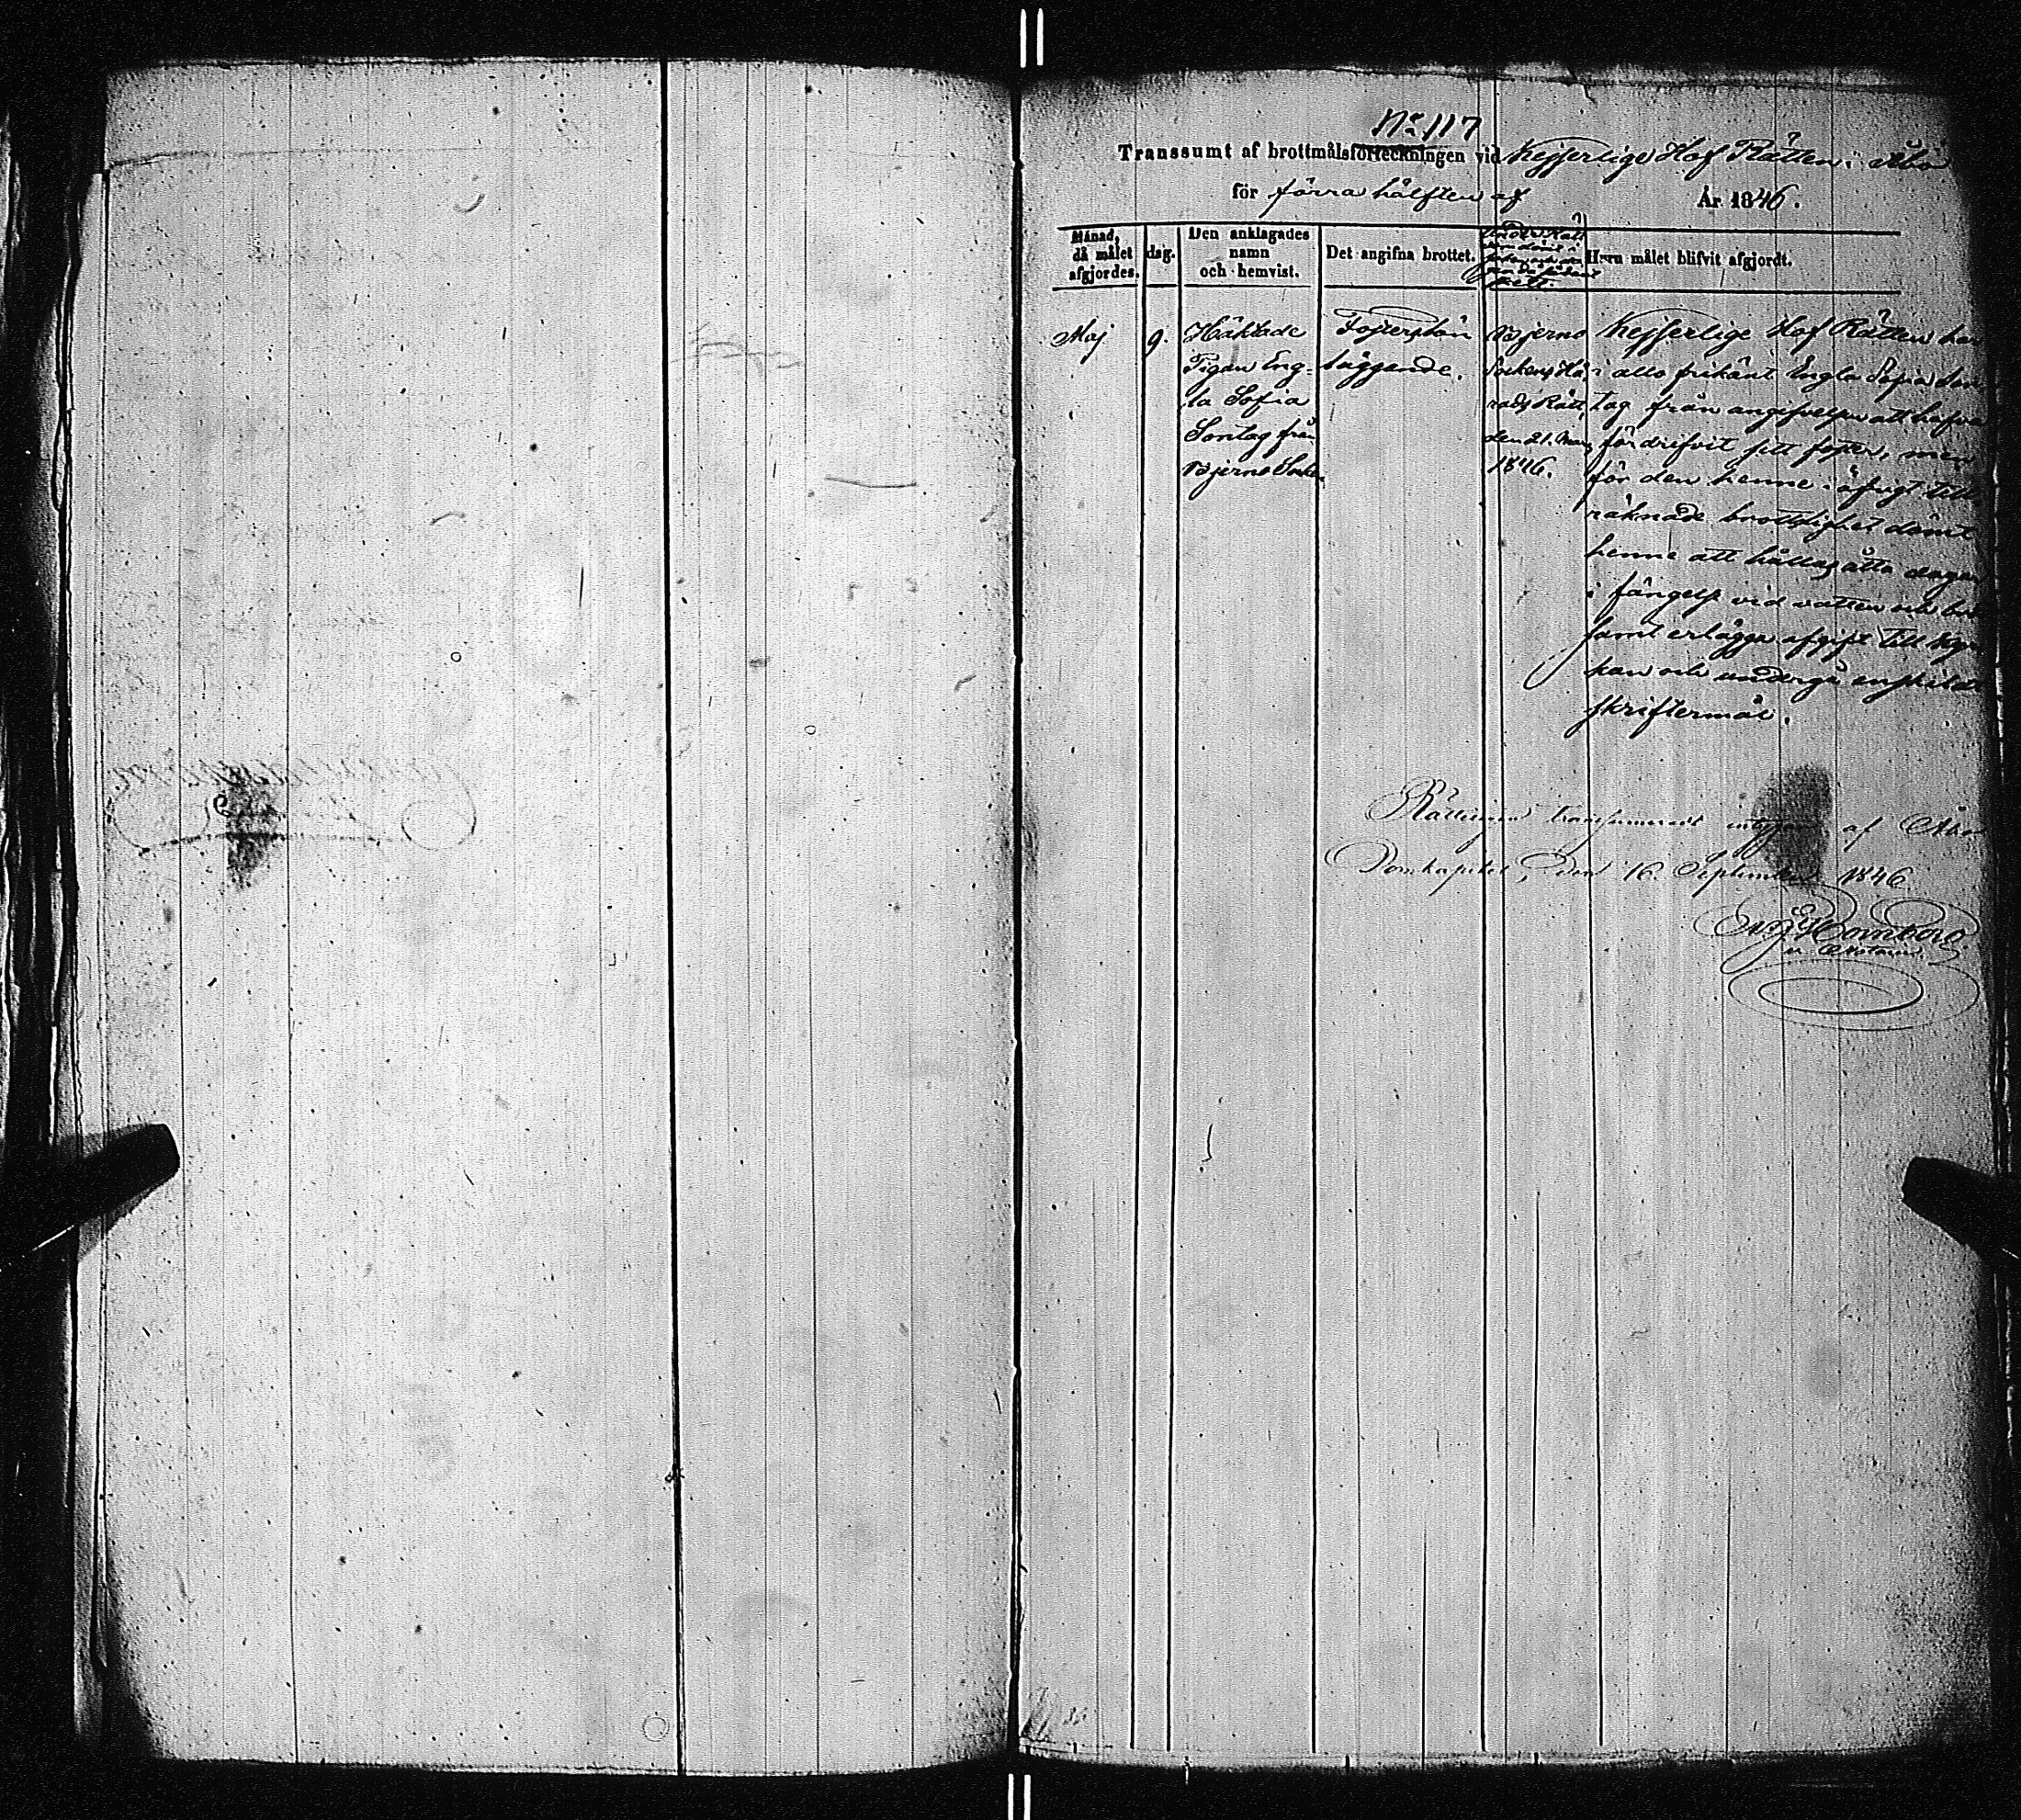 No 117
Transsumt af brottmålsförteckningen vid Kejserlige Hof Rätten i Åbo
för förra hälften af År 1846.
Månad, då målet afgjordes.
dag.
Den anklagades namn och hemvist.
Det angifna brottet.
Under Rätt
skett.
Huru målet blifvit afgjordt.
Maj
9.
Häktade
Pigan Eng-
la Sofia
Sontag från
Bjerno Socken.
Fosterslön
läggande.
Bjerno
Sockens Hä-
rads Rätt,
den 21. Mars
1846.
Kejserlige Hof Rätten har
i allo frikänt Engla Sofia Son
tag från angifvelsen att hafva
fördrifvit sitt foster, men
för den henne i öfrigt till
räknade brottslighet dömt
henne att hållas åtta dagar
i fängelse vid vatten och bröd
samt erlägga afgift till kyr
kan och undergå enskildt
skriftermål.
Rätteligen transsumeradt intygar af Åbo
Domkapitel, den 16. September 1846.
Notarie.